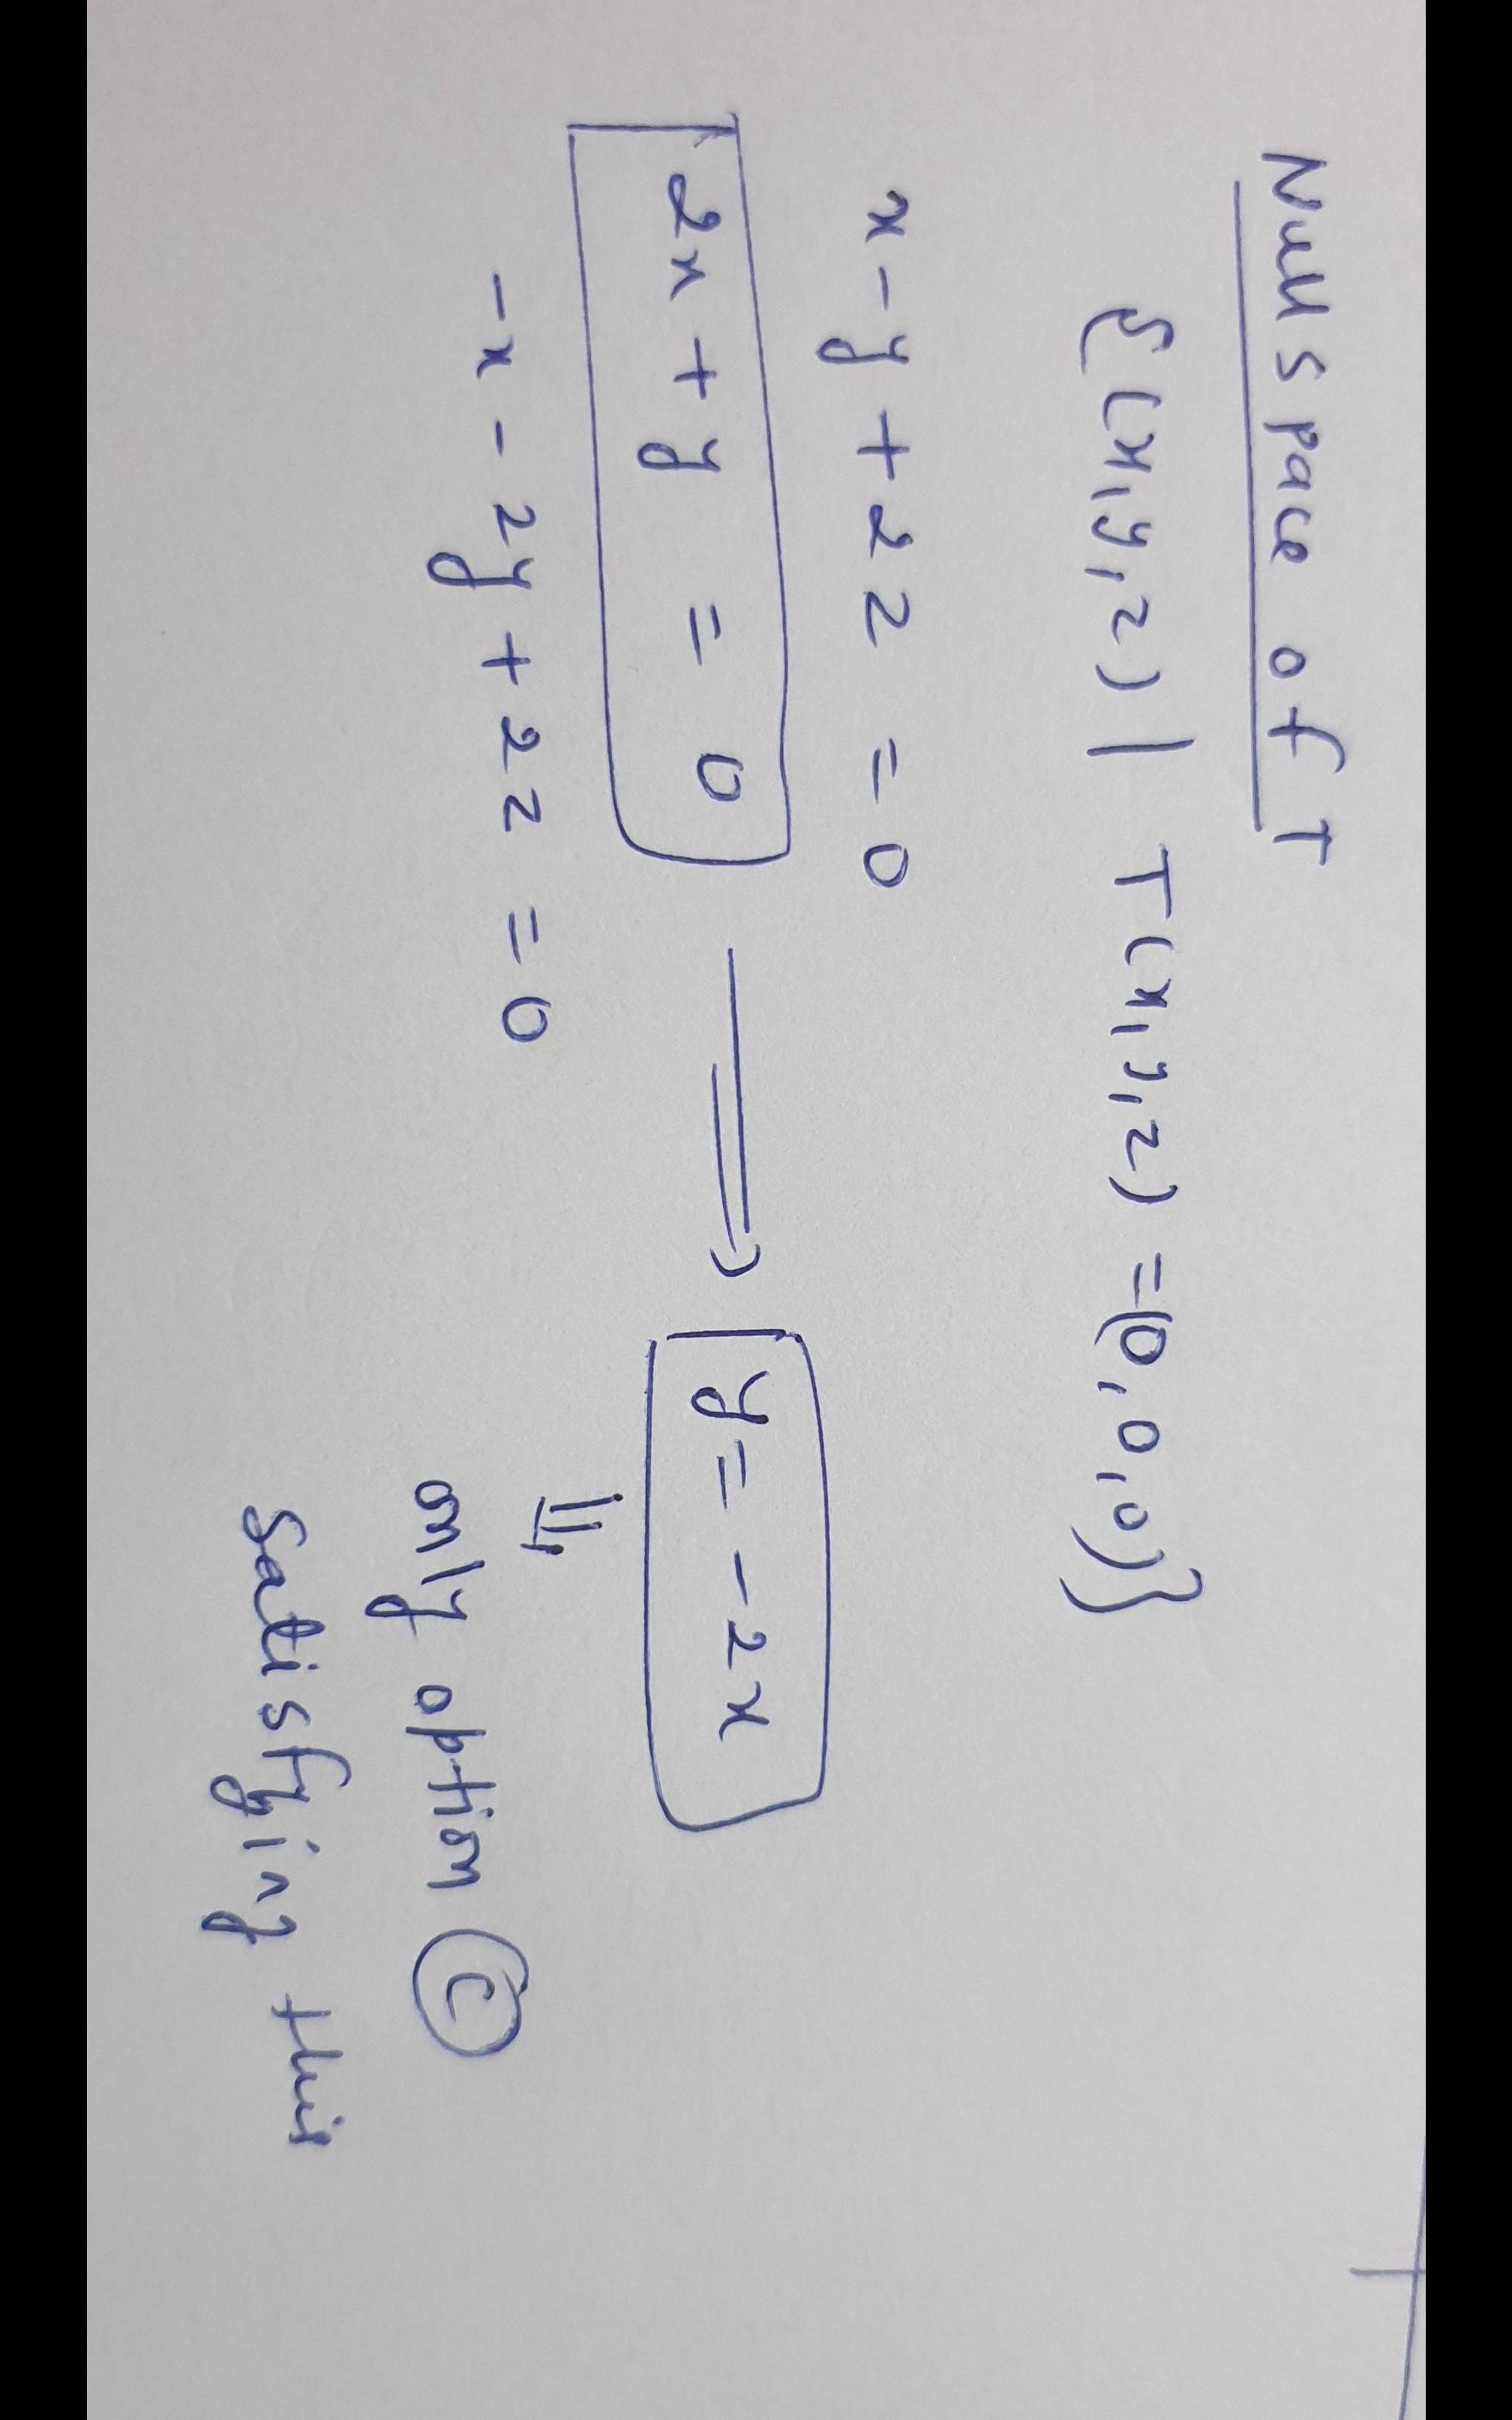 Null space of T
{(x,y,z) | T(x,y,z) = (0,0,0)}
x - y + 2z = 0
2x + y = 0 ⟹ y = -2x
-x - 2y + 2z = 0
⇓
only option (c)
satisfying this